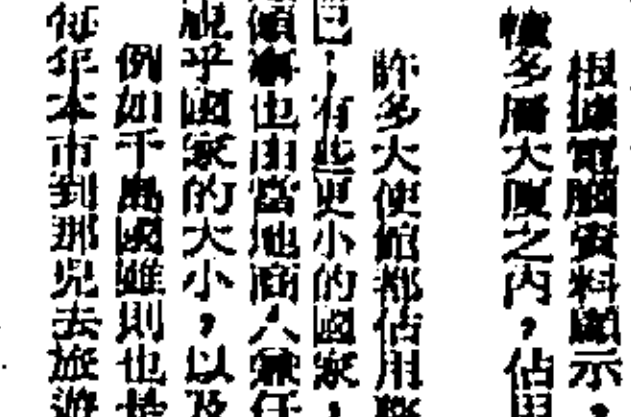 根據電腦資料顯示，
幢多層大廈之內，佔用
許多大使館都佔用
，有些更小的國家，
領事也由當地商人兼任
視乎國家的大小，以及
例如千島國雖則也是
每年本市到那兒去旅遊